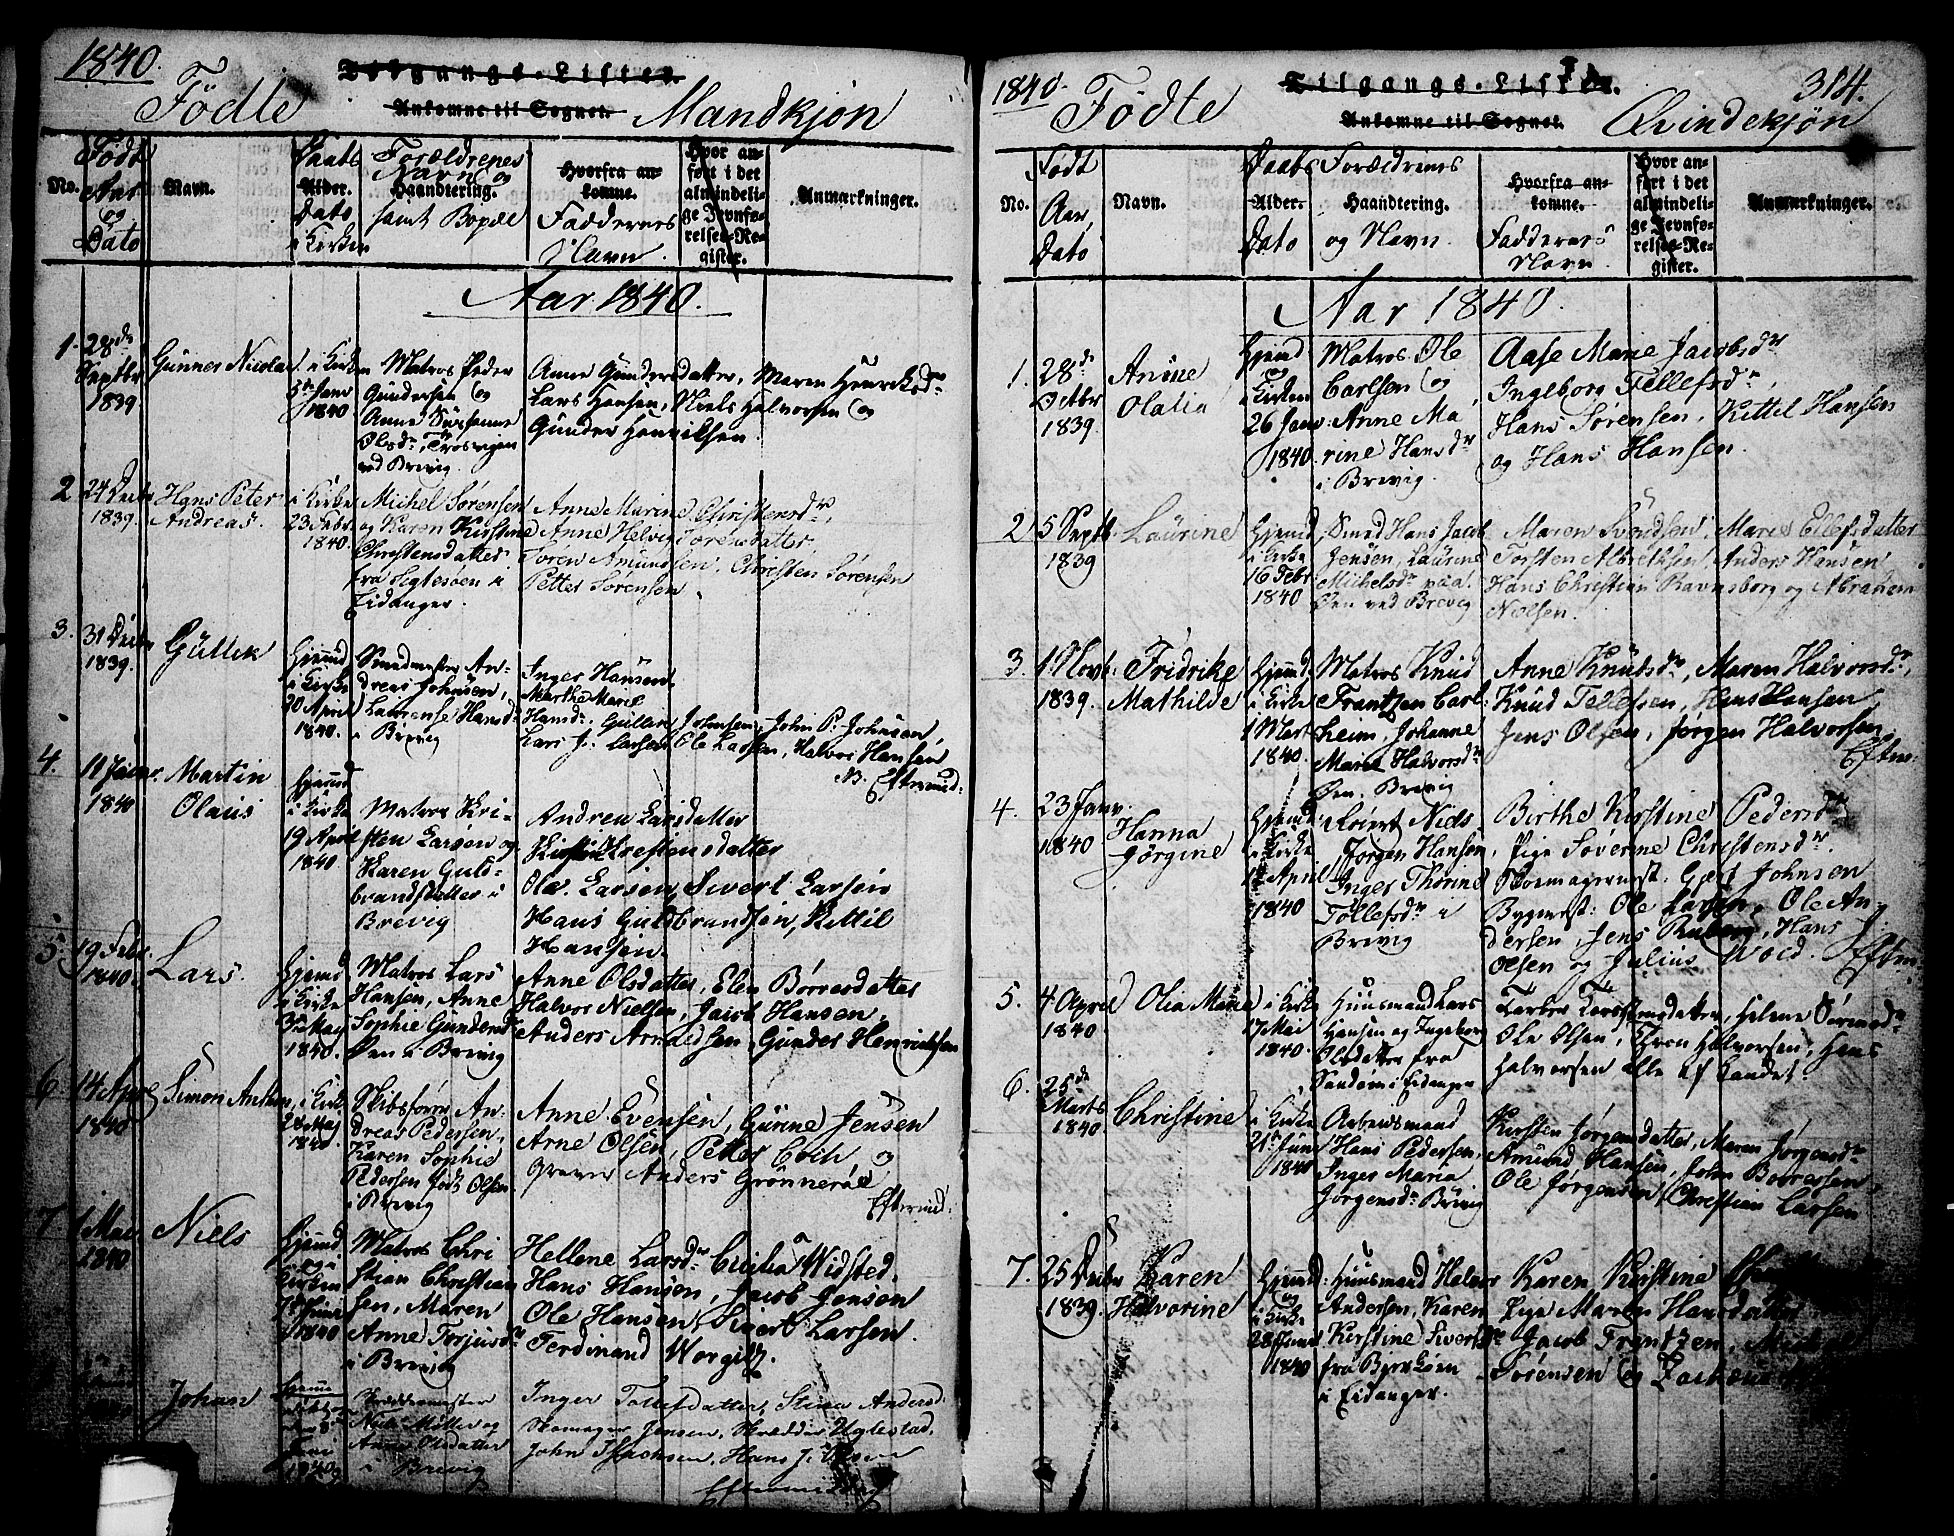 1840.
Fødte
Tilgangs-Lister.
Ankomne til Sognet.
Mandkjøn
No.
Født
Aar
og
Dato
Navn.
Daabs
Alder.
Dato
i Kirken
Forældrenes
Navn og
Haandtering.
samt Bopæl
Hvorfra an-
komne.
Faddernes
Navn.
Hvor an-
ført i det
almindeli-
ge Jevnfø-
relses-Re-
gister.
Anmærkninger.
Aar 1840.
1.
28de
Septbr
1839
Gunner Nicolai
i Kirken
5te Janv
1840
Matros Peder
Gundersen og
Anne
Olsdr, Trosvigen
ved Brevig.
Anne Gundersdatter, Maren Henriksdr
Lars Hansen, Niels Halvorsen og
Gunder Henriksen.
2
24 Decbr
1839.
Hans Peter
Andreas.
i Kirke
23 Febr
1840.
Michel Sørensen
og Karen Kirstine
Christensdatter
fra
i
Eidanger.
Anne Marine Christensdr,
Anne Helvig Sørensdatter
Søren Amundsen, Christen Sørensen
Petter Sørensen.
3.
31 Decbr
1839.
Gullek
Hjemd
i Kirke
20 April
1840.
Smedmester An-
dreas Johnsen,
Laurense Hansdr
i Brevig
Inger Hansen
Marthe Marie
Hansdr. Gullen Johnsen, John P. Johnsen,
Lars J. Larsen, Ole Larsen, Halvor Hansen
N. Eftermid:
4.
11 Janv.
1840
Martin
Olaus
Hjemd
i Kirke
19 April
1840.
Matros Kri-
sten Larsen og
Karen Guld-
brandsdatter i
Brevig
Andrea Larsdatter
Kirstin Krestensdatter
Ole Larsen, Sivert Larsen
Hans Guldbrandsen, Kittil
Hansen.
5.
19 Febr.
1840.
Lars.
Hjemd
i Kirke
3die May
1840.
Matros Lars
Hansen, Anne
Sophie Gundersdr
Øen i Brevig
Anne Olsdatter, Elen Børresdatter
Halvor Nielsen, Jacob Hansen,
Anders Arnoldsen, Gunder Henriksen
6
14 April
1840
Simon Anthon
i Kirke
28 May
1840.
Skibsfører An-
dreas Pedersen,
Karen Sophie
Pedersen født Olsen
i Brevig
Anne Evensen, Gurine Jensen
Arne Olsen, Petter Coch og
Anders Grønnerøe
Eftermid:
7.
1 Mai
1840
Niels
Hjemd
og i
Kirken
1840
Matros Chri
stian Christian
sen, Maren
Anne Torjusdr
i Brevig
Hellene Larsdr Cicilia Widsted.
Hans Hansen, Jacob Jensen
Ole Hansen, Sivert Larsen.
Ferdinand Worgitz.
Johan
1840
Skreddermester
Niels Møller og
Anne Olsdatter
i Brevig
Inger Tollefsdatter, Stina Andersd.
Skomager Jensen, Skredder Uglestad,
John Isachsen, Hans J. Olsen
Eftermiddag
1840.
Fødte
Tilgangs-Lister.
Ankomne til Sognet.
Qvindekjøn
314.
No.
Født
Aar,
Dato
Navn.
Daabs
Alder.
Dato
Forældrenes
Haandtering.
og Navn.
Hvorfra an-
komne.
Faddernes
Navn.
Hvor an-
ført i det
almindeli-
ge Jevnfø-
relses-Re-
gister.
Anmærkninger.
Aar 1840.
1.
28de
Octbr
1839
Anine
Olalia
Hjemd
og
i Kirken
26 Janv.
1840.
Matros Ole
Carlsen og
Anne Ma
rine Hansdr
i Brevig.
Aase Marie Jacobsdr
Ingeborg Tellefsdr,
Hans Sørensen, Kittel Hansen
og Hans Hansen.
2
5 Septb.
1839
Laurine
Hjemd
i Kirke
16 Febr
1840
Smed Hans Jacob
Jensen, Laurine
Michelsdr paa
Øen ved Brevig
Maren Svendsen, Maren Ellefsdatter
Torsten Albrethsen, Anders Hansen
Hans Christian Ravnsborg og Abraham
Nielsen.
3.
1 Novb.
1839.
Fridrike
Mathilde
Hjemd
i Kirke
1 Mart
1840.
Matros Knud
Frantzen Carl-
heim, Johanne
Marie Halvorsdr
Øen. Brevig
Anne Knutsdr, Maren Halvorsdr,
Knud Tellefsen, Hans Hansen,
Jens Olsen, Jørgen Halvorsen
Eftm:
4.
23 Janv.
1840
Hanna
Jørgine
Hjemd
i Kirke
April
1840
Niels
Jørgen Hansen,
Inger Thorine
Tollefsdr i
Brevig
Birthe Kirstine Pedersdr
Pige Severine Christensdr.
Skomagermest: Gjert Johnsen
Bygmest: Ole Larsen, Ole An-
dersen, Jens Ruberg, Hans J.
Olsen og Julius Wold. Eftm:
5.
4 April
1840
Olea Marie
i Kirke
17 Mai
1840.
Huusmand Lars
Hansen og Ingeborg
Olsdatter fra
Sandøen i Eidanger
Torber Torstensdatter, Helene Sørensdr
Ole Olsen, Thron Halvorsen, Hans
Halvorsen alle af Landet.
6.
25de
Marts
1840
Christine
i Kirke
21 Juni
1840
Arbeidsmand
Hans Pedersen,
Inger Maria
Jørgensdr Brevig
Kirsten Jørgensdatter, Maren Jørgensdr
Amund Hansen, John Børresen,
Ole Jørgensen, Christian Larsen
7.
25 Decbr
1839.
Karen
Halvorine
Hjemd:
og
i Kirke
28 Juni
1840
Huusmand Halvor
Andersen, Karen
Kirstine Sivertsdr
fra Bjerkøen
i Eidanger.
Karen Kirstine
Pige Maren Hansdatter
Jacob Frantzen, Michael
Sørensen og Zacharias